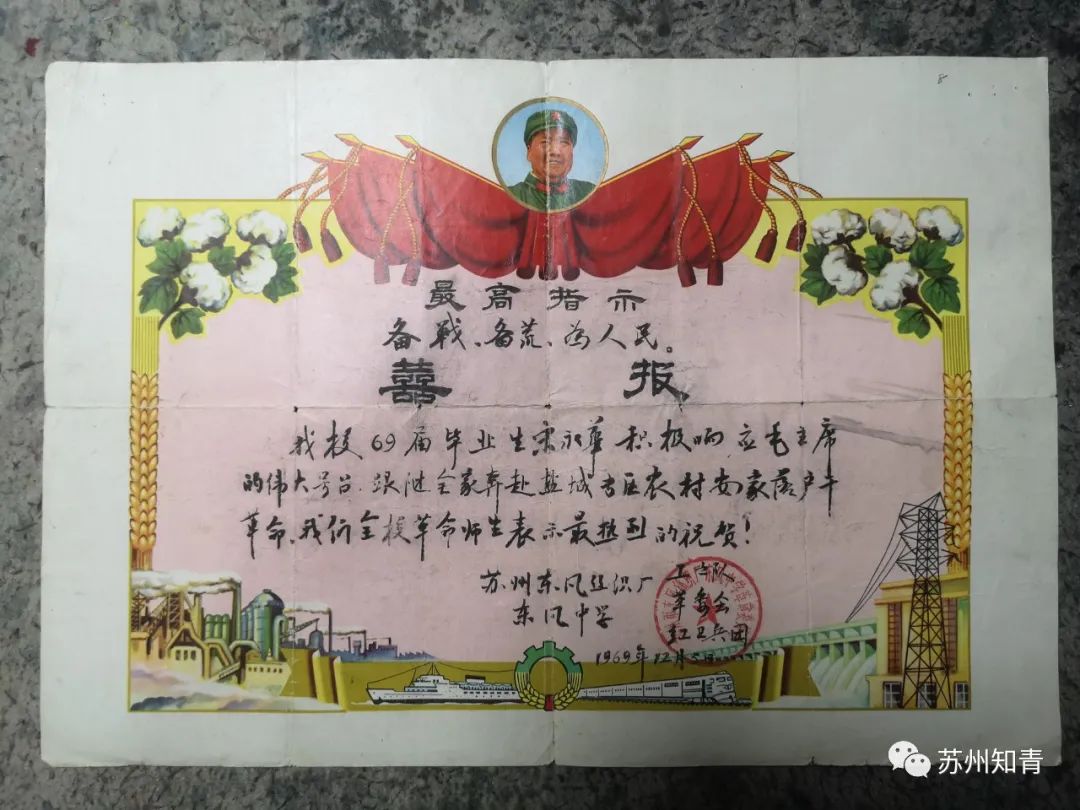 8
最高指示
备战、备荒、为人民。
囍报
我校69届毕业生宋永华积极响应毛主席
的伟大号召.跟随全家奔赴盐城专区农村安家落户干
革命、我们全校革命师生表示最热烈的祝贺!
苏州东风丝织厂 工宣队
东风中学 革委会
红卫兵团
1969年12月5日
苏州知青